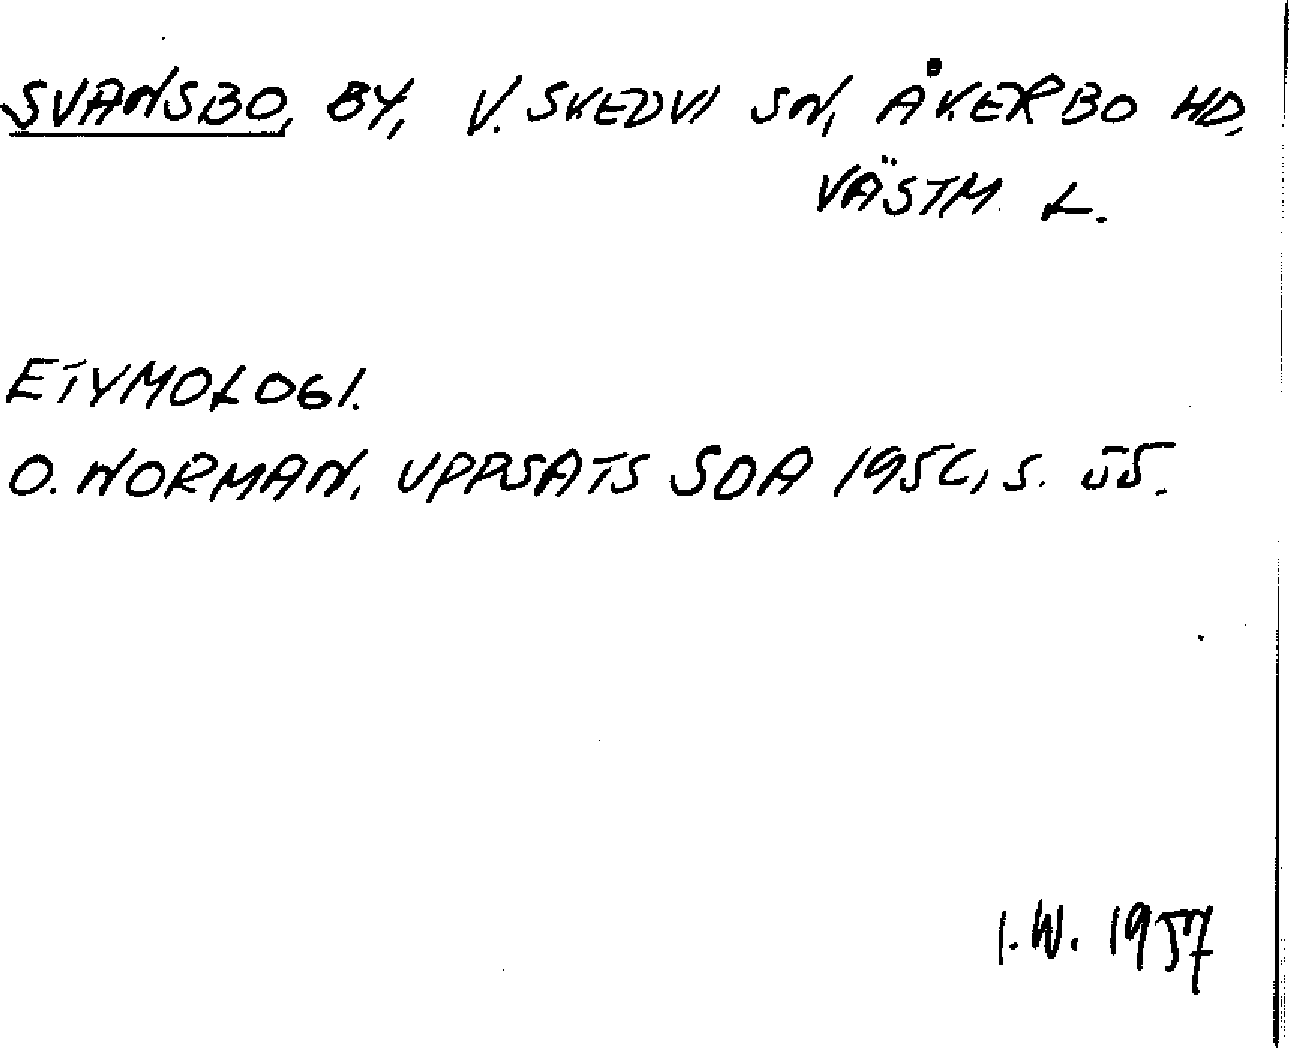 SVANSBO, BY, V. SKEDVI SN, ÅKERBO HD,
VÄSTM. L.
ETYMOLOGI.
O. NORMAN, UPPSATS SOA 1956, S. 55.
I.W. 1957